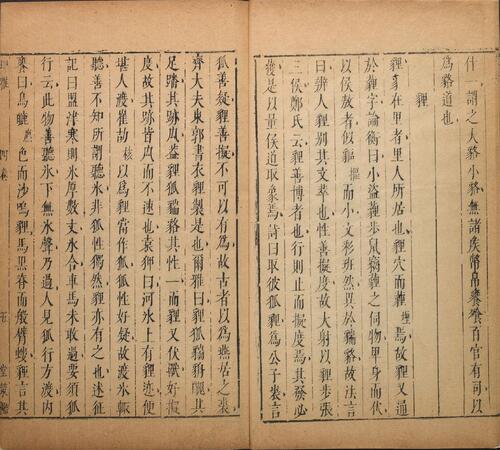 什一謂之大貉小貉無諸矦幣帛饔飧百官有司以
為貉道也
貍
貍豸在里者里人所居也貍穴而薶埋焉故貍又通
於薶字論衡曰小盜貍步鼠竊貍之伺物卑身而伏
以侯放者似貙摳而小文彩班然異於貒貉故法言
曰辨人貍別其文萃也性善擬度故大射以貍步張
三侯鄭氏云貍善博者也行則止而擬度焉其發必
獲是以量侯道取象焉詩曰取彼狐貍為公子裘言
狐善疑貍善擬不可以有為故古者以為燕居之裘
齊大夫東郭書衣貍製是也爾雅曰貍狐貒貈醜其
足蹯其跡内蓋貍狐貒貉其性一而貍又伏獸好擬
度故其跡皆内而不速也袁狎曰河氷上有貍迹便
堪人渡崔劼核以為貍當作狐狐性好疑故渡氷輒
聽善不知所謂聽氷非狐性獨然貍亦有之也述征
記曰盟津寒則氷厚數丈氷合車馬未敢過要須狐
行云此物善聽氷下無氷聲乃過人見狐行方渡内
曰烏色而沙鳴貍馬黒脊而般臂螻貍言其